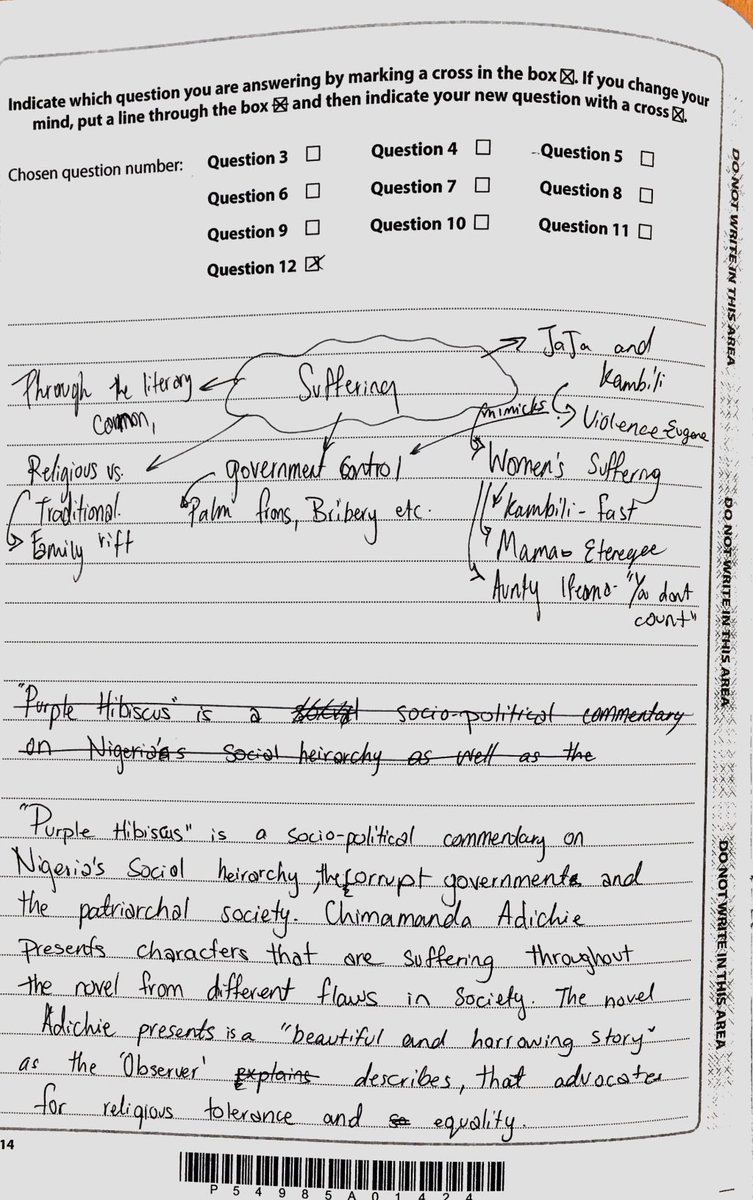 Indicate which question you are answering by marking a cross in the box ☒. If you change your
mind, put a line through the box ☒ and then indicate your new question with a cross ☒.
Chosen question number: Question 3 ☐ Question 4 ☐ Question 5 ☐
Question 6 ☐ Question 7 ☐ Question 8 ☐
Question 9 ☐ Question 10 ☐ Question 11 ☐
Question 12 ☒
Suffering
Through the literary
common,
Religious vs.
Traditional.
Family rift
government control
Palm frons, Bribery etc.
JaJa and
Kambili
Violence-Eugene
mimicks
Women's Suffering
Kambili - fast
Mama
Aunty Ifeoma- "You dont
count"
"Purple Hibiscus" is a social socio-political commentary
on Nigeria's social heirarchy as well as the
"Purple Hibiscus" is a socio-political commentary on
Nigeria's Social heirarchy, the corrupt government and
the patriarchal society. Chimamanda Adichie
presents characters that are suffering throughout
the novel from different flaws in society. The novel
Adichie presents is a "beautiful and harrowing story"
as the 'Observer' explains describes, that advocates
for religious tolerance and so equality.
14
P54985A01424
DO NOT WRITE IN THIS AREA
DO NOT WRITE IN THIS AREA
DO NOT WRITE IN THIS AREA